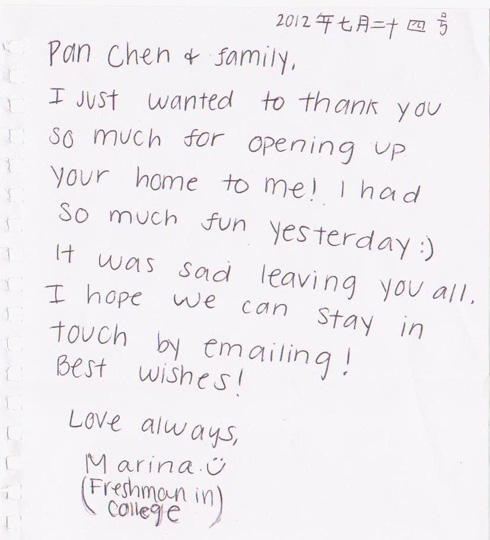 2012年七月二十四号
Pan Chen & family,
I just wanted to thank you
so much for opening up
your home to me! I had
so much fun yesterday :)
It was sad leaving you all.
I hope we can stay in
touch by emailing!
Best wishes!
Love always,
Marina. Ü
(Freshman in
college)